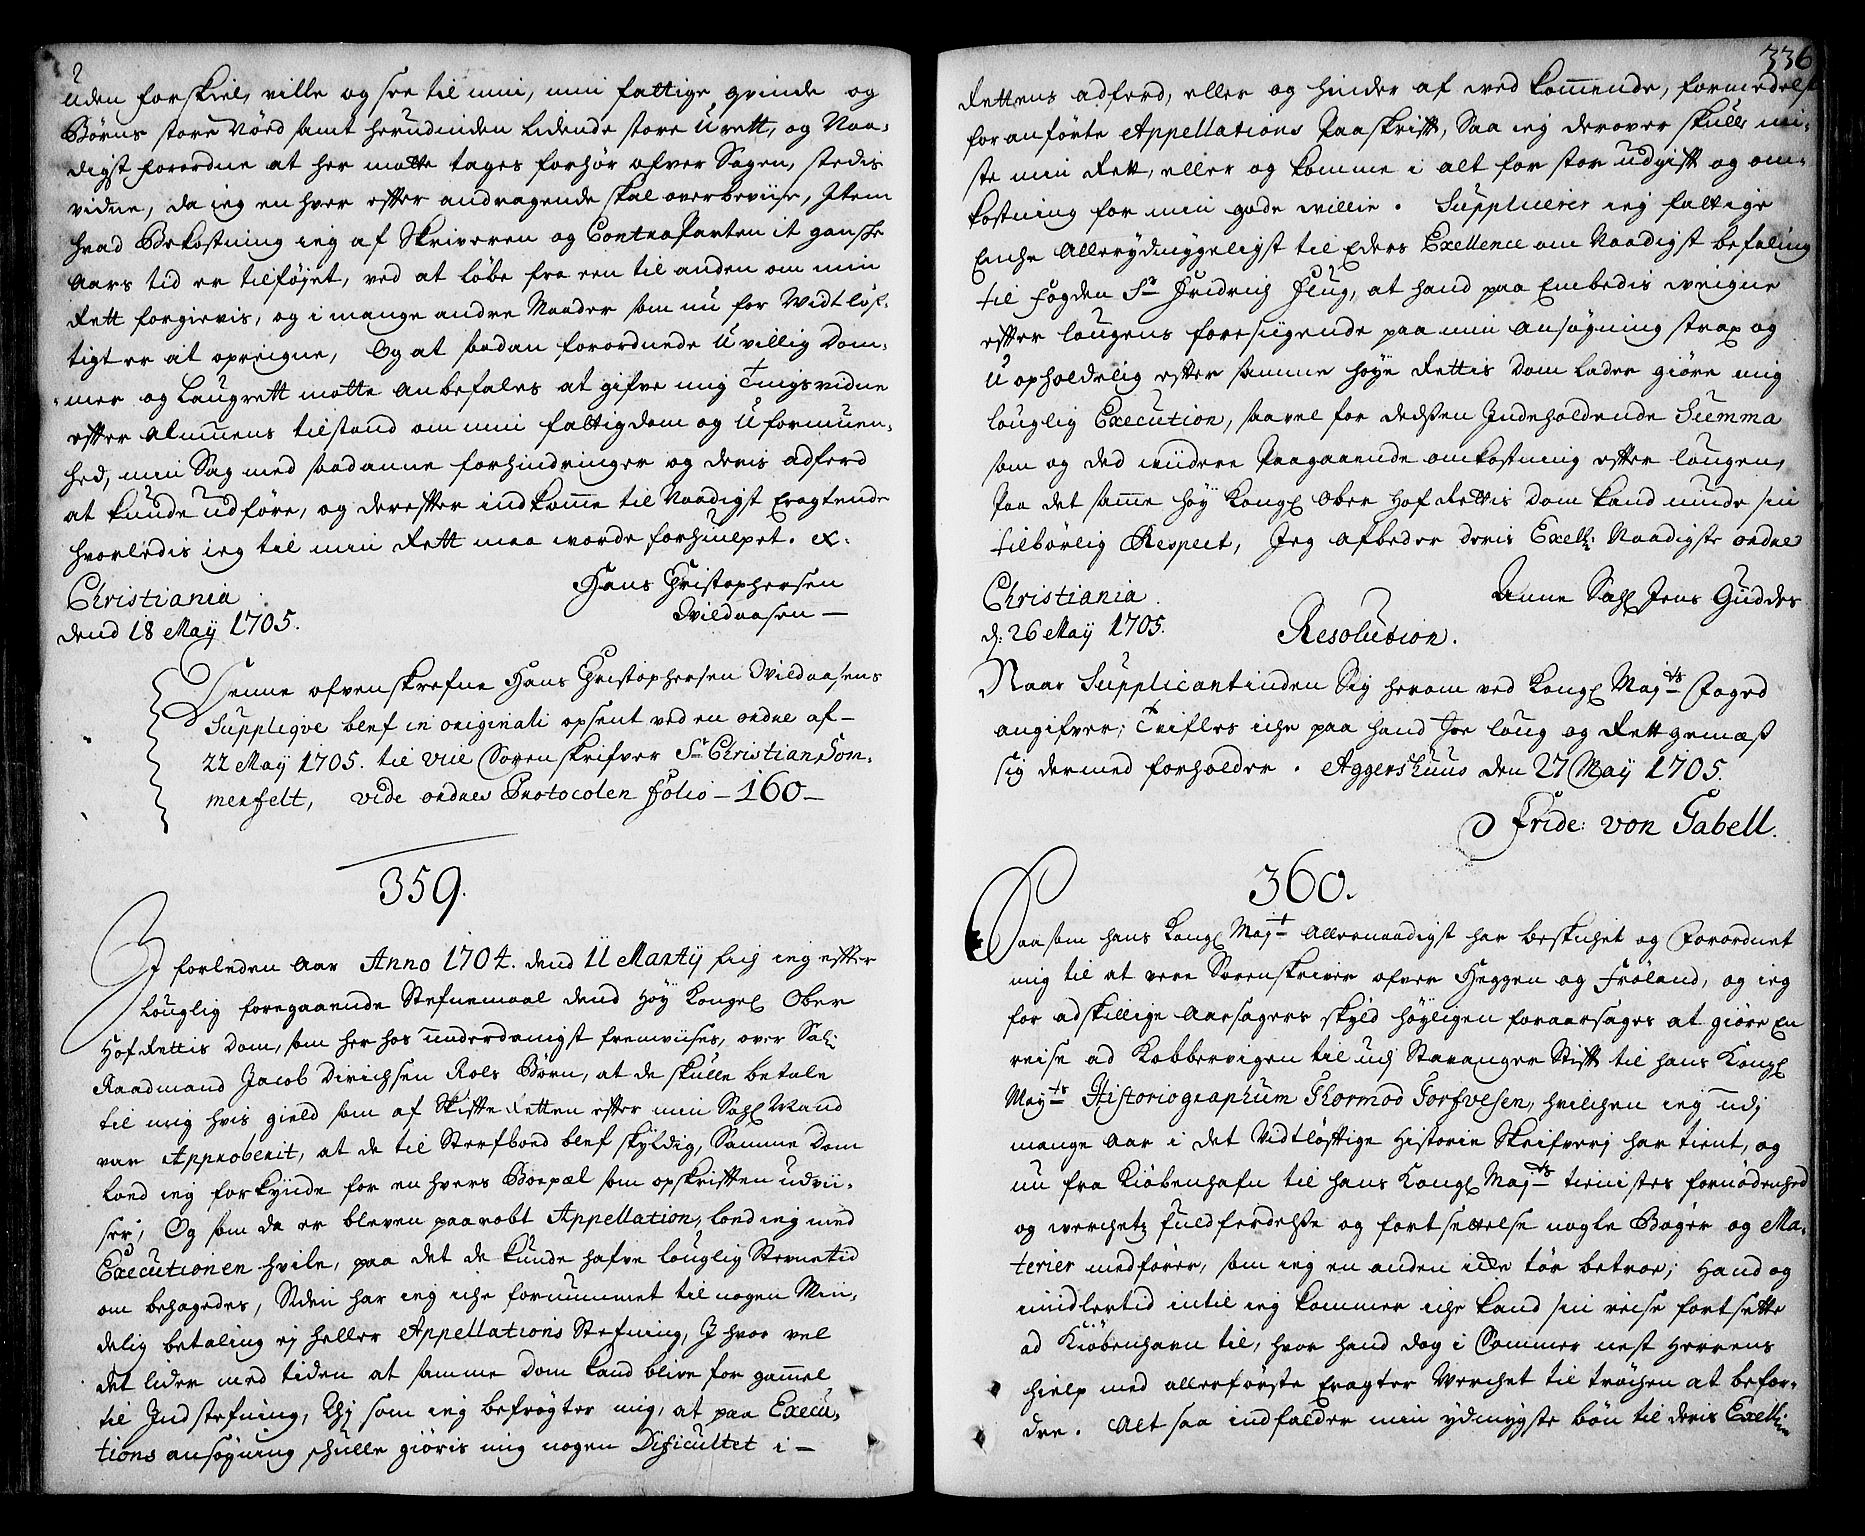 uden forskiel, ville og see til min, min fattige qvinde og
Børns store Nöed samt herudinden lidende store Uret, og Naa-
digst forordne at her motte tages forhør ofver Sagen, stedis
vidne, da ieg en hver efter andragende skal overbeviise, Item
hvad Bekostning ieg af Skriveren og Contraparten it ganske
Aars tid er tilföyet, ved at löbe fra een til anden om min
Rett forgievis, og i mange andre Maader som nu for Widtlöf-
tigt er at opreigne, Og at saadan forordnede Uvillig Dom-
mer og Laugrett motte anbefales at gifve mig Tingsvidne
efter almuens tilstand om min fattigdom og Uformuen-
hed, min Sag med saadanne forhindringer og deris adferd
at kunde udføre, og derefter indkomme til Naadigst Eragtende
hvorledis ieg til min Rett maa worde forhiulpet. ex.
Christiania
dend 18 Maÿ 1705.
Hans Christophersen
Qvildaasen
Denne ofvenskrefne Hans Christophersen Qvildaasens
Suppliqve blef in originali opsent ved en ordre af
22 Maÿ 1705. til Viic Sorenskrifver Sr Christian Som-
merfelt, vide ordres Protocolen folio - 160 -
359.
I forleden Aar Anno 1704. dend 11 Martÿ fich ieg efter
louglig foregaaende Stefnemaal dend Höy Kongel Ober
Hof Rettis Dom, som her hos underdanigst fremviises, over Sal:
Raadmand Jacob Dirichsen Rols Börn, at de skulle betale
til mig hvis gield som af Skifte Retten efter min Sahl Mand
var Approberit, at de til Sterfboed blef skÿldig, Samme Dom
loed ieg forkÿnde for en hvers Boepæl som opskriften udvii-
ser, Og som da er bleven paarobt Appellation, loed ieg med
Executionen hvile, paa det de kunde hafve louglig Stevnetid
om behagedes, Siden har ieg iche fornummet til nogen Min-
delig betaling ej heller Appellations Stefning, I hvor vel
det lider med tiden at samme Dom kand blive for gammel
til Indstefning, Thj som ieg befrögter mig, at paa Execu-
tions ansögning schulle giöris mig nogen Dificultet i -
336
Rettens adferd, eller og hinder af ved kommende, formedelst
for anförte Appellations Paaskrift, Saa ieg derover skulle mi-
ste min Rett, eller og komme i alt for stor udgift og om-
kostning for min gode willie. Supplicerer ieg fattige
Enche Allerÿdmÿgeligst til Eders Exellence om Naadigst befaling
til fogden Sr Fridrich Plug, at hand paa Embedis weigne
efter lougens foresiigende paa min ansögning strax og
Uopholdelig efter samme höÿe Rettis Dom lader giöre mig
louglig Execution, saavel for dedssen Indeholdende Summa
som og ded wiidere Paagaaende omkostning efter lougen,
Paa det samme höy Kongl Ober Hof Rettis Dom kand nÿde sin
tilbörlig Respect, Jeg afbeder deris Exell: Naadigste ordre
Christiania
d: 26 Maÿ 1705.
Anne Sahl Jens Guddes
Resolution.
Naar Supplicantinden Sig herom ved Kongl Maj:ts Foged
angifver, Tvifles iche paa hand Joe loug og Rett gemæß
sig dermed forholder. Aggershuus den 27 Maÿ 1705.
Fride: von Gabell.
360.
Saasom hans Kongl Maj:t Allernaadigst har beskichet og Forordnet
mig til at vere Sorenskriver ofver Heggen og Fröland, og ieg
for adskillige Aarsagers skÿld höÿligen foraarsages at giöre En
reise ad Kobbervigen til udj Stavanger Stift til hans Kongl
Maÿ:ts Historiographum Thormod Torfvesen, hvilchen ieg udj
mange Aar i det Vidtlöftige Historie Skrifverj har tient, og
nu fra Kiöbenhafn til hans Kongl Maj:ts tienistes fornödenhed
og werchetz fuldferdelse og fortsettelse nogle Böger og Ma-
terier medförer, som ieg en anden icke tör betroe; Hand og
imidlertid intil ieg kommer iche kand sin reise fortsette
ad Kiöbenhavn til, hvor hand dog i Sommer nest Herrens
hielp med allerförste Eragter Werchet til tröchen at befor-
dre. Alt saa indfalder min ydmygste bön til deris Exell: